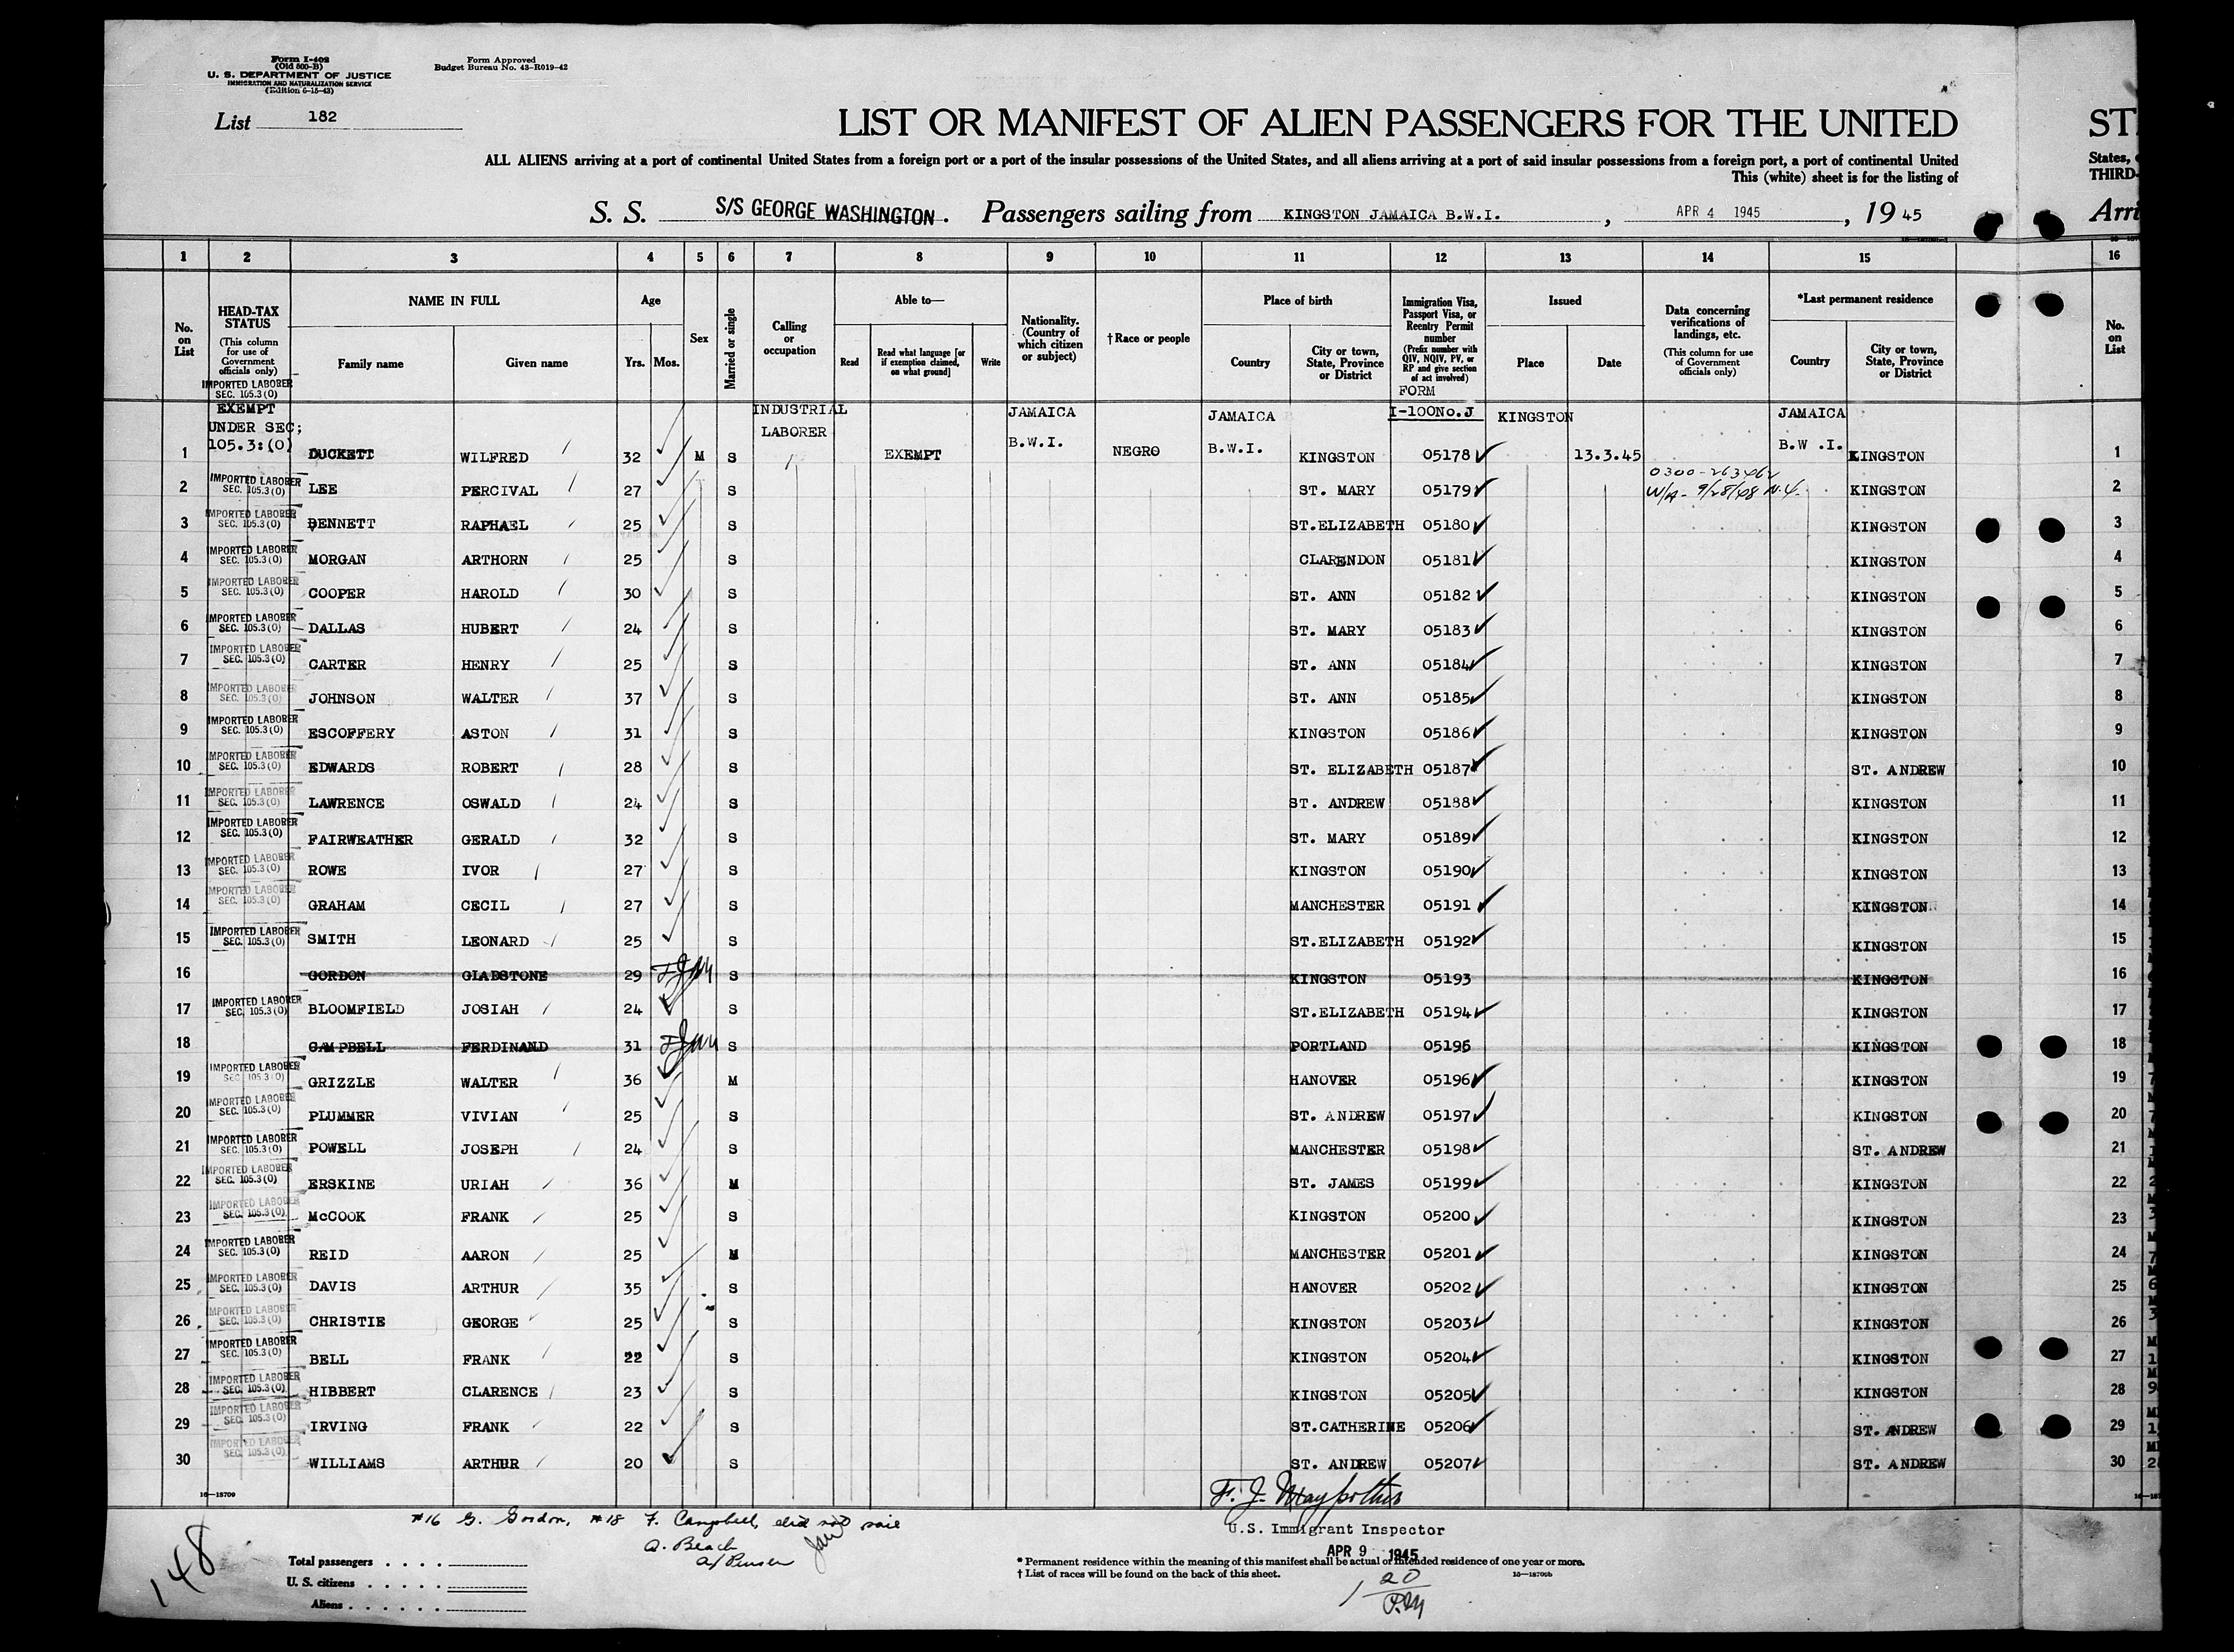 Form I-402
(Old 500-B)
U. S. DEPARTMENT OF JUSTICE
IMMIGRATION AND NATURALIZATION SERVICE
(Edition 6-15-43)
Form Approved
Budget Bureau No. 43-R019-42
List 182
LIST OR MANIFEST OF ALIEN PASSENGERS FOR THE UNITED
ALL ALIENS arriving at a port of continental United States from a foreign port or a port of the insular possessions of the United States, and all aliens arriving at a port of said insular possessions from a foreign port, a port of continental United
States,
This (white) sheet is for the listing of
THIRD-
S. S. S/S GEORGE WASHINGTON. Passengers sailing from KINGSTON JAMAICA B.W.I., APR 4 1945, 1945
1 2 3 4 5 6 7 8 9 10 11 12 13 14 15 16
No. on List
HEAD-TAX STATUS (This column for use of Government officials only)
NAME IN FULL
Family name
Given name
Age
Yrs. Mos.
Sex
Married or single
Calling or occupation
Able to—
Read
Read what language [or if exemption claimed, on what ground]
Write
Nationality. (Country of which citizen or subject)
†Race or people
Place of birth
Country
City or town, State, Province or District
Immigration Visa, Passport Visa, or Reentry Permit number (Prefix number with QIV, NQIV, PV, or RP and give section of act involved)
Issued
Place
Date
Data concerning verifications of landings, etc. (This column for use of Government officials only)
*Last permanent residence
Country
City or town, State, Province or District
No. on List
IMPORTED LABORER SEC. 105.3(O)
FORM
EXEMPT INDUSTRIAL JAMAICA JAMAICA I-100No.J KINGSTON JAMAICA
UNDER SEC; LABORER B.W.I. B.W.I. B.W.I.
105.3:(O)
1 DUCKETT WILFRED 32 M S EXEMPT NEGRO KINGSTON 05178 13.3.45 KINGSTON 1
0300-263462
2 IMPORTED LABORER SEC. 105.3(O) LEE PERCIVAL 27 S ST. MARY 05179 W/A- 9/28/48 N.Y. KINGSTON 2
3 IMPORTED LABORER SEC. 105.3(O) BENNETT RAPHAEL 25 S ST.ELIZABETH 05180 KINGSTON 3
4 IMPORTED LABORER SEC. 105.3(O) MORGAN ARTHORN 25 S CLARENDON 05181 KINGSTON 4
5 IMPORTED LABORER SEC. 105.3(O) COOPER HAROLD 30 S ST. ANN 05182 KINGSTON 5
6 IMPORTED LABORER SEC. 105.3(O) DALLAS HUBERT 24 S ST. MARY 05183 KINGSTON 6
7 IMPORTED LABORER SEC. 105.3(O) CARTER HENRY 25 S ST. ANN 05184 KINGSTON 7
8 IMPORTED LABORER SEC. 105.3(O) JOHNSON WALTER 37 S ST. ANN 05185 KINGSTON 8
9 IMPORTED LABORER SEC. 105.3(O) ESCOFFERY ASTON 31 S KINGSTON 05186 KINGSTON 9
10 IMPORTED LABORER SEC. 105.3(O) EDWARDS ROBERT 28 S ST. ELIZABETH 05187 ST. ANDREW 10
11 IMPORTED LABORER SEC. 105.3(O) LAWRENCE OSWALD 24 S ST. ANDREW 05188 KINGSTON 11
12 IMPORTED LABORER SEC. 105.3(O) FAIRWEATHER GERALD 32 S ST. MARY 05189 KINGSTON 12
13 IMPORTED LABORER SEC. 105.3(O) ROWE IVOR 27 S KINGSTON 05190 KINGSTON 13
14 IMPORTED LABORER SEC. 105.3(O) GRAHAM CECIL 27 S MANCHESTER 05191 KINGSTON 14
15 IMPORTED LABORER SEC. 105.3(O) SMITH LEONARD 25 S ST.ELIZABETH 05192 KINGSTON 15
16 GORDON GLADSTONE 29 S KINGSTON 05193 KINGSTON 16
17 IMPORTED LABORER SEC. 105.3(O) BLOOMFIELD JOSIAH 24 S ST.ELIZABETH 05194 KINGSTON 17
18 CAMPBELL FERDINAND 31 S PORTLAND 05195 KINGSTON 18
19 IMPORTED LABORER SEC. 105.3(O) GRIZZLE WALTER 36 M HANOVER 05196 KINGSTON 19
20 IMPORTED LABORER SEC. 105.3(O) PLUMMER VIVIAN 25 S ST. ANDREW 05197 KINGSTON 20
21 IMPORTED LABORER SEC. 105.3(O) POWELL JOSEPH 24 S MANCHESTER 05198 ST. ANDREW 21
22 IMPORTED LABORER SEC. 105.3(O) ERSKINE URIAH 36 M ST. JAMES 05199 KINGSTON 22
23 IMPORTED LABORER SEC. 105.3(O) McCOOK FRANK 25 S KINGSTON 05200 KINGSTON 23
24 IMPORTED LABORER SEC. 105.3(O) REID AARON 25 M MANCHESTER 05201 KINGSTON 24
25 IMPORTED LABORER SEC. 105.3(O) DAVIS ARTHUR 35 S HANOVER 05202 KINGSTON 25
26 IMPORTED LABORER SEC. 105.3(O) CHRISTIE GEORGE 25 S KINGSTON 05203 KINGSTON 26
27 IMPORTED LABORER SEC. 105.3(O) BELL FRANK 22 S KINGSTON 05204 KINGSTON 27
28 IMPORTED LABORER SEC. 105.3(O) HIBBERT CLARENCE 23 S KINGSTON 05205 KINGSTON 28
29 IMPORTED LABORER SEC. 105.3(O) IRVING FRANK 22 S ST.CATHERINE 05206 ST. ANDREW 29
30 IMPORTED LABORER SEC. 105.3(O) WILLIAMS ARTHUR 20 S ST. ANDREW 05207 ST. ANDREW 30
16—18709
#16 G. Gordon, #18 F. Campbell, did not sail
A. Beach
U.S. Immigrant Inspector
APR 9 1945
148
Total passengers . . . .
U. S. citizens . . . . .
Aliens . . . . . .
* Permanent residence within the meaning of this manifest shall be actual or intended residence of one year or more.
† List of races will be found on the back of this sheet.
16—18709b
1 20
P.M